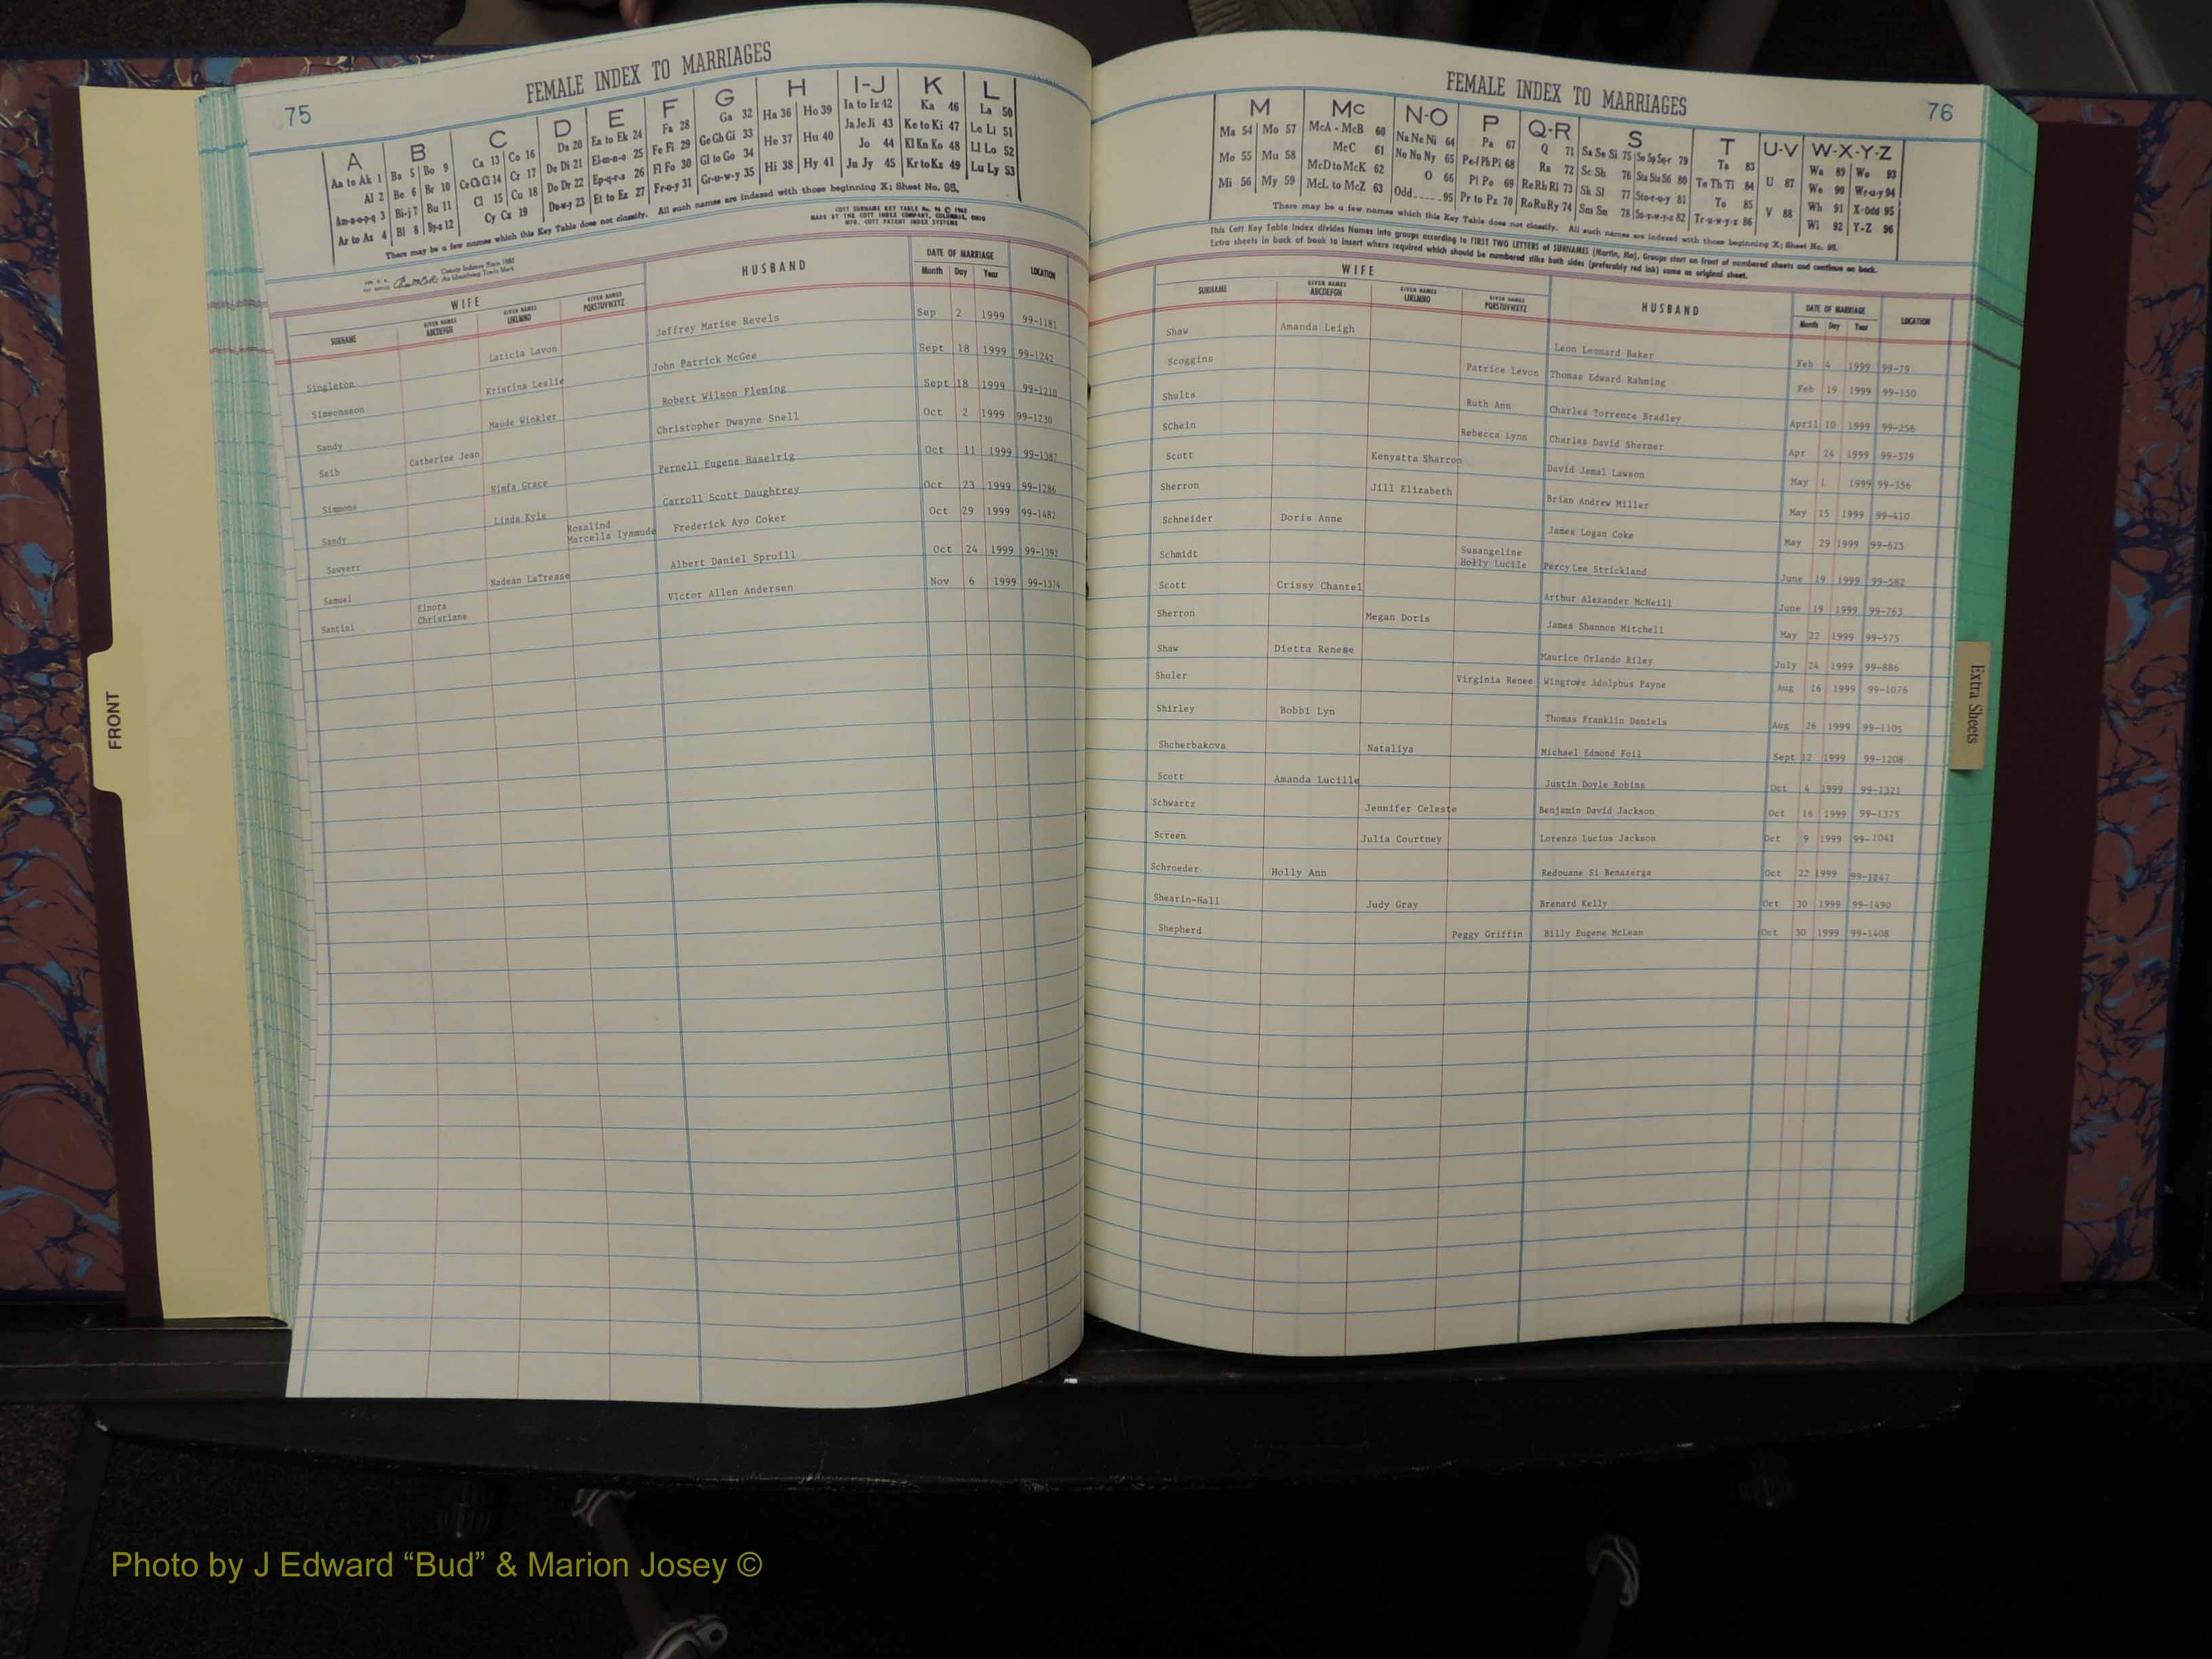 75
FEMALE INDEX TO MARRIAGES
A B C D E F G H I-J K L
Aa to Ak 1 Ba 5 Bo 9 Ca 13 Co 16 Da 20 Ea to Ek 24 Fa 28 Ga 32 Ha 36 Ho 39 Ia to Iz 42 Ka 46 La 50
Al 2 Be 6 Br 10 Ce Ch Ci 14 Cr 17 De Di 21 El-m-n-o 25 Fe Fi 29 Ge Gh Gi 33 He 37 Hu 40 Ja Je Ji 43 Ke to Ki 47 Le Li 51
Am-n-o-p-q 3 Bi-j 7 Bu 11 Cl 15 Cu 18 Do Dr 22 Ep-q-r-s 26 Fl Fo 30 Gl to Go 34 Hi 38 Hy 41 Jo 44 Kl Kn Ko 48 Ll Lo 52
Ar to Az 4 Bl 8 By-z 12 Cy Cz 19 Du-w-y 23 Et to Ez 27 Fr-u-y 31 Gr-u-w-y 35 Ju Jy 45 Kr to Kz 49 Lu Ly 53
There may be a few names which this Key Table does not classify. All such names are indexed with those beginning X; Sheet No. 95.
COTT SURNAME KEY TABLE No. 96 © 1962
MADE BY THE COTT INDEX COMPANY, COLUMBUS, OHIO
MFG. COTT PATENT INDEX SYSTEMS
County Indexes Since 1888
An Identifying Trade Mark
WIFE HUSBAND DATE OF MARRIAGE LOCATION
SURNAME GIVEN NAMES ABCDEFGH GIVEN NAMES IJKLMNO GIVEN NAMES PQRSTUVWXYZ Month Day Year
Singleton Laticia Lavon Jeffrey Marise Revels Sep 2 1999 99-1181
Simeonsson Kristina Leslie John Patrick McGee Sept 18 1999 99-1242
Sandy Maude Winkler Robert Wilson Fleming Sept 18 1999 99-1210
Seib Catherine Jean Christopher Dwayne Snell Oct 2 1999 99-1230
Simmons Nimfa Grace Pernell Eugene Haselrig Oct 11 1999 99-1387
Sandy Linda Kyle Carroll Scott Daughtrey Oct 23 1999 99-1286
Sawyerr Rosalind Marcella Iyamude Frederick Ayo Coker Oct 29 1999 99-1482
Samuel Nadean LaTrease Albert Daniel Spruill Oct 24 1999 99-1392
Santini Elnora Christiane Victor Allen Andersen Nov 6 1999 99-1374
FRONT
FEMALE INDEX TO MARRIAGES
76
M Mc N-O P Q-R S T U-V W-X-Y-Z
Ma 54 Mo 57 McA - McB 60 Na Ne Ni 64 Pa 67 Q 71 Sa Se Si 75 So Sp Sq-r 79 Ta 83 U 87 Wa 89 Wo 93
Me 55 Mu 58 McC 61 No Nu Ny 65 Pe-f Ph Pi 68 Ra 72 Sc Sh 76 Sta Ste Sti 80 Te Th Ti 84 V 88 We 90 Wr-u-y 94
Mi 56 My 59 McD to McK 62 O 66 Pl Po 69 Re Rh Ri 73 Sk Sl 77 Sto-r-u-y 81 To 85 Wh 91 X-Odd 95
McL to McZ 63 Odd.....95 Pr to Pz 70 Ro Ru Ry 74 Sm Sn 78 Su-v-w-y-z 82 Tr-u-w-y-z 86 Wi 92 Y-Z 96
There may be a few names which this Key Table does not classify. All such names are indexed with those beginning X; Sheet No. 95.
This Cott Key Table Index divides Names into groups according to FIRST TWO LETTERS of SURNAMES (Martin, Ma). Groups start on front of numbered sheets and continue on back.
Extra sheets in back of book to insert where required which should be numbered alike both sides (preferably red ink) same as original sheet.
WIFE HUSBAND DATE OF MARRIAGE LOCATION
SURNAME GIVEN NAMES ABCDEFGH GIVEN NAMES IJKLMNO GIVEN NAMES PQRSTUVWXYZ Month Day Year
Shaw Amanda Leigh Leon Leonard Baker Feb 4 1999 99-79
Scoggins Patrice Levon Thomas Edward Rahming Feb 19 1999 99-150
Shults Ruth Ann Charles Torrence Bradley April 10 1999 99-256
SChein Rebecca Lynn Charles David Shermer Apr 24 1999 99-379
Scott Kenyatta Sharron David Jamal Lawson May 1 1999 99-356
Sherron Jill Elizabeth Brian Andrew Miller May 15 1999 99-410
Schneider Doris Anne James Logan Coke May 29 1999 99-625
Schmidt Susangeline Holly Lucile Percy Lee Strickland June 19 1999 99-582
Scott Crissy Chantel Arthur Alexander McNeill June 19 1999 99-763
Sherron Megan Doris James Shannon Mitchell May 22 1999 99-575
Shaw Dietta Renese Maurice Orlando Riley July 24 1999 99-886
Shuler Virginia Renee Wingrove Adolphus Payne Aug 16 1999 99-1076
Shirley Bobbi Lyn Thomas Franklin Daniels Aug 26 1999 99-1105
Shcherbakova Nataliya Michael Edmond Foil Sept 12 1999 99-1208
Scott Amanda Lucille Justin Doyle Robins Oct 4 1999 99-1321
Schwartz Jennifer Celeste Benjamin David Jackson Oct 16 1999 99-1375
Screen Julia Courtney Lorenzo Lucius Jackson Oct 9 1999 99-1041
Schroeder Holly Ann Redouane Si Benazerga Oct 22 1999 99-1247
Shearin-Hall Judy Gray Brenard Kelly Oct 30 1999 99-1490
Shepherd Peggy Griffin Billy Eugene McLean Oct 30 1999 99-1408
Extra Sheets
Photo by J Edward “Bud” & Marion Josey ©